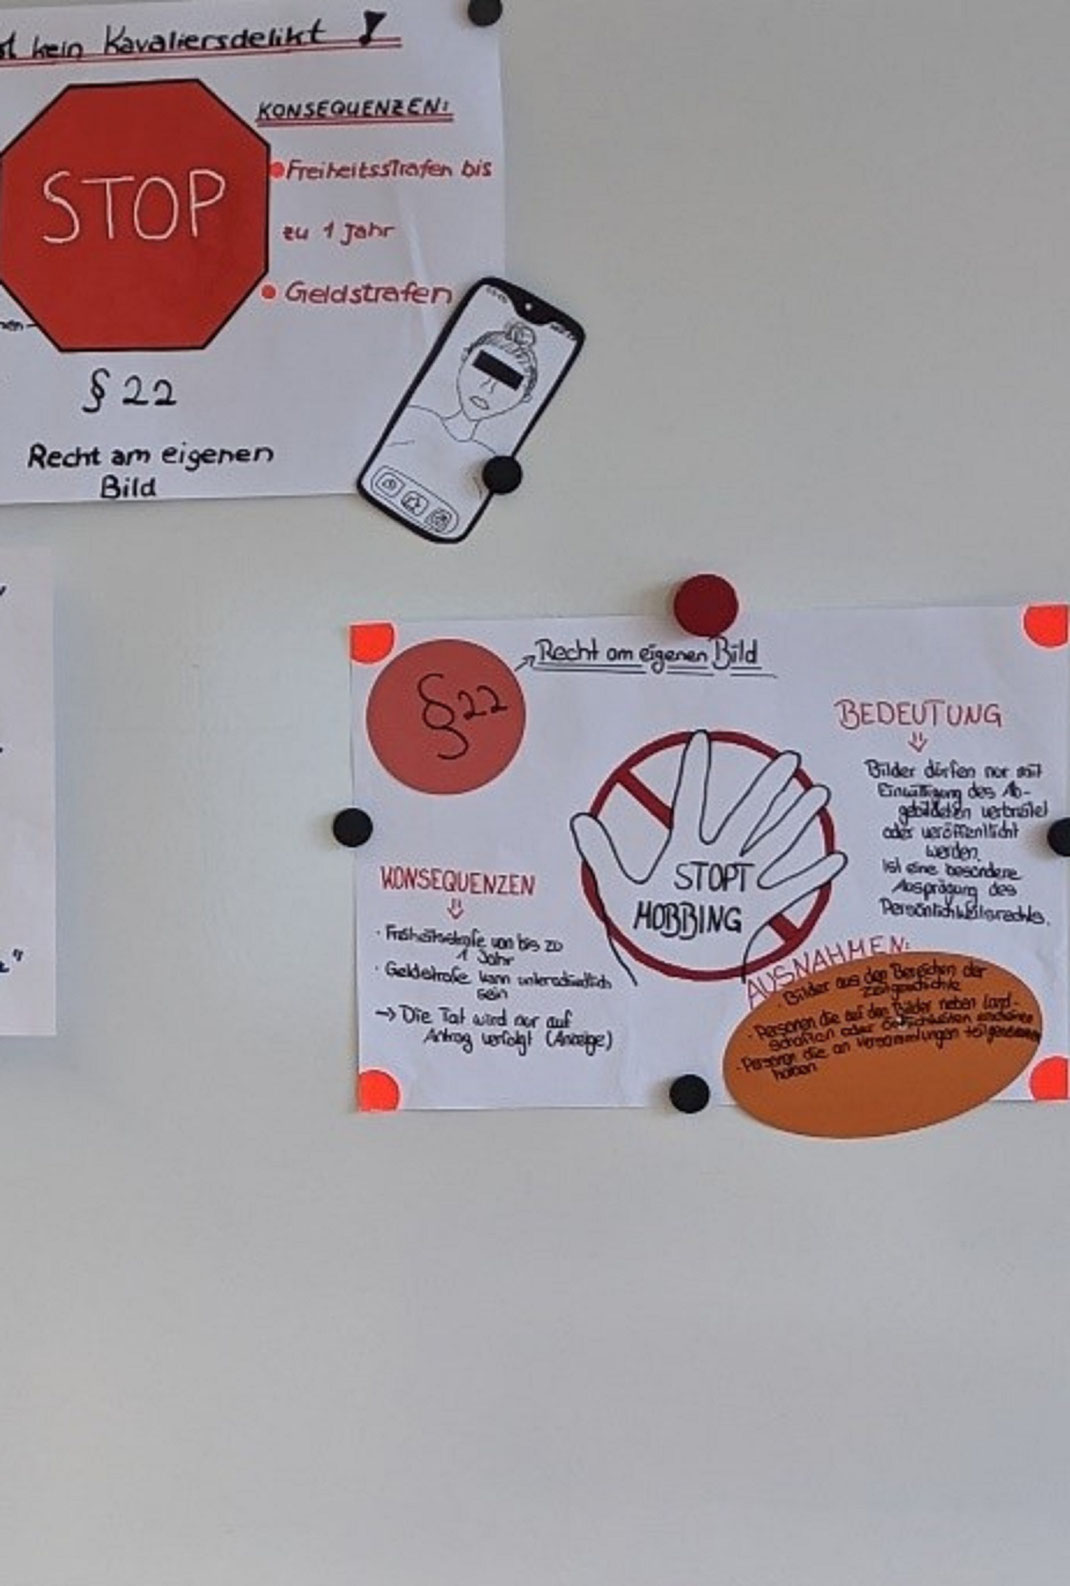 kein Kavaliersdelikt !
KONSEQUENZEN:
Freiheitsstrafen bis
zu 1 Jahr
Geldstrafen
STOP
§ 22
Recht am eigenen
Bild
§22
Recht am eigenen Bild
BEDEUTUNG
Bilder dürfen nur mit
Einwilligung des Ab-
gebildeten verbreitet
oder veröffentlicht
werden.
Ist eine besondere
Ausprägung des
Persönlichkeitsrechtes.
STOPT
MOBBING
KONSEQUENZEN
· Freiheitsstrafe von bis zu
1 Jahr
· Geldstrafe kann unterschiedlich
sein
→ Die Tat wird nur auf
Antrag verfolgt (Anzeige)
AUSNAHMEN:
· Bilder aus den Bereichen der
Zeitgeschichte
· Personen die auf den Bilder neben Land-
schaften oder Örtlichkeiten erscheinen
· Personen die an Versammlungen teilgenommen
haben